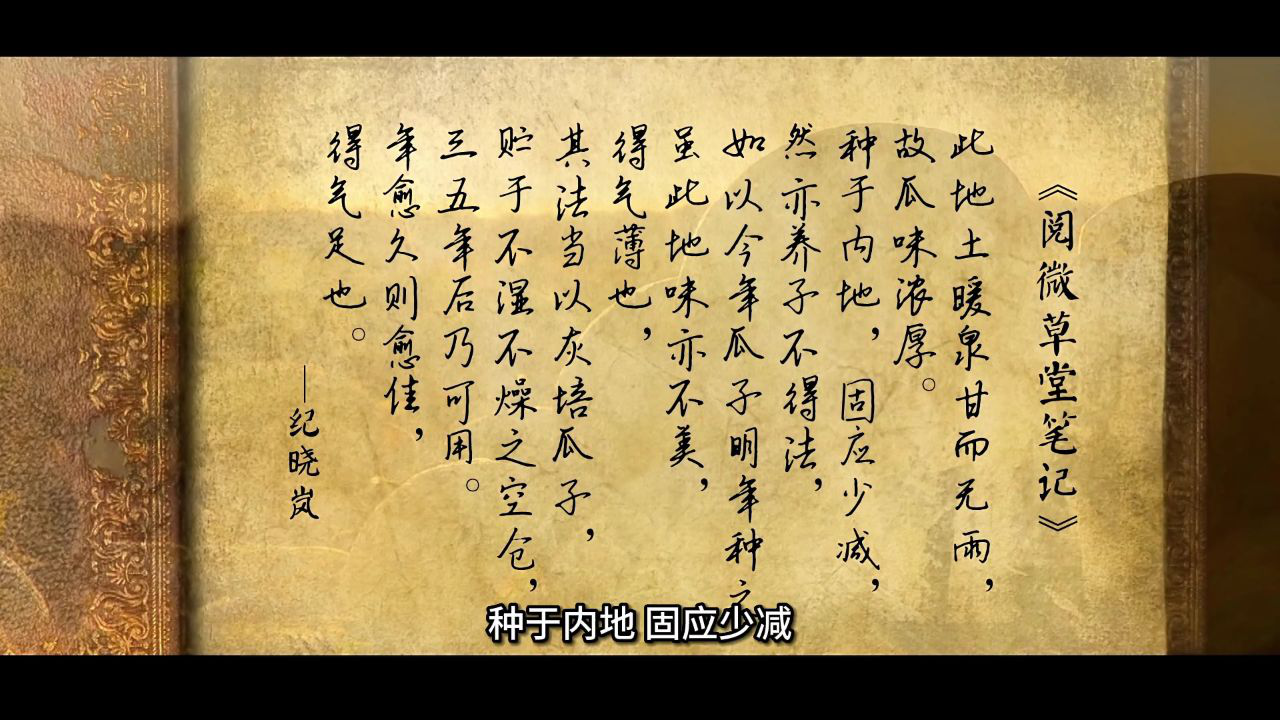 《阅微草堂笔记》
此地土暖泉甘而无雨，
故瓜味浓厚。
种于内地，固应少减，
然亦养子不得法，
如以今年瓜子明年种
虽此地味亦不美，
得气薄也，
其法当以灰培瓜子，
贮于不湿不燥之空仓，
三五年后乃可用。
年愈久则愈佳，
得气足也。
—纪晓岚
种于内地 固应少减